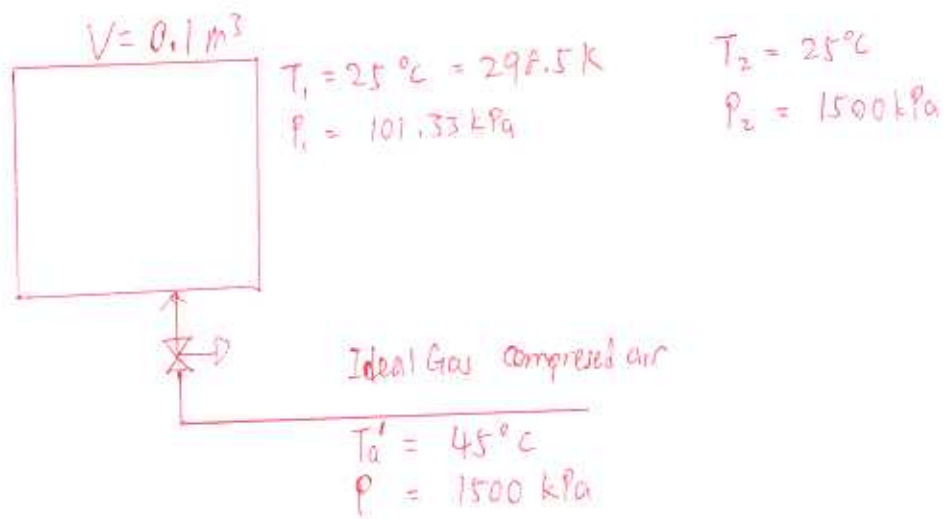 V = 0.1 m³
T₁ = 25 °C = 298.5 K
P₁ = 101.33 kPa
T₂ = 25°C
P₂ = 1500 kPa
Ideal Gas compresed air
Ta' = 45°C
P = 1500 kPa